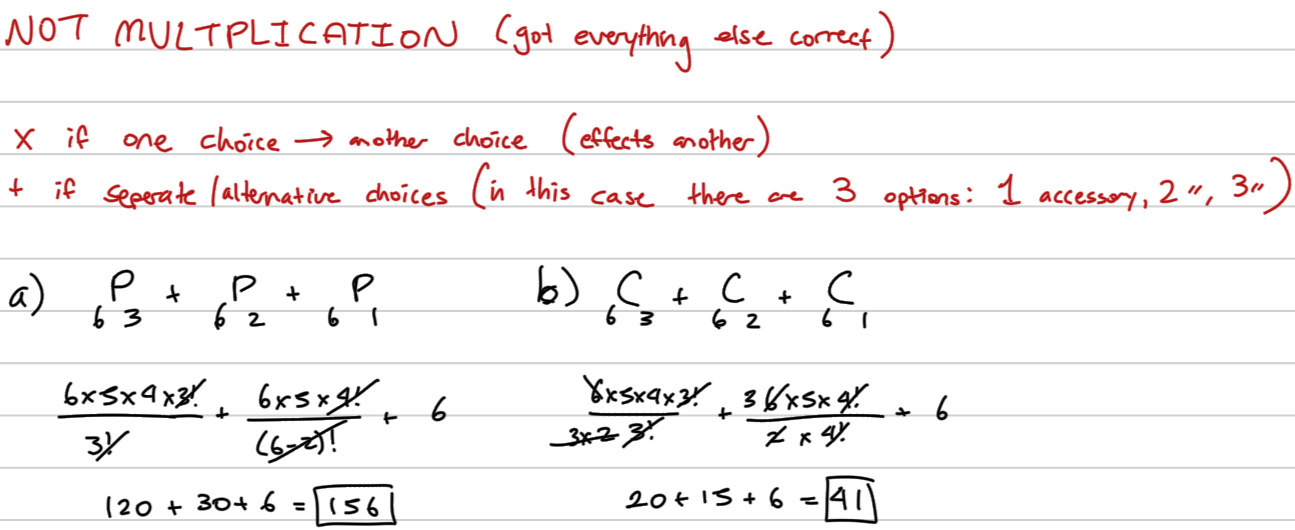 NOT MULTPLICATION (got everything else correct)
× if one choice → another choice (effects another)
+ if seperate/alternative choices (in this case there are 3 options: 1 accessory, 2 ", 3 ")
a) ₆P₃ + ₆P₂ + ₆P₁
b) ₆C₃ + ₆C₂ + ₆C₁
6×5×4×3!/3! + 6×5×4!/(6-2)! + 6
6×5×4×3!/3×2 3! + 3 6×5×4!/2×4! + 6
120 + 30 + 6 = 156
20 + 15 + 6 = 41